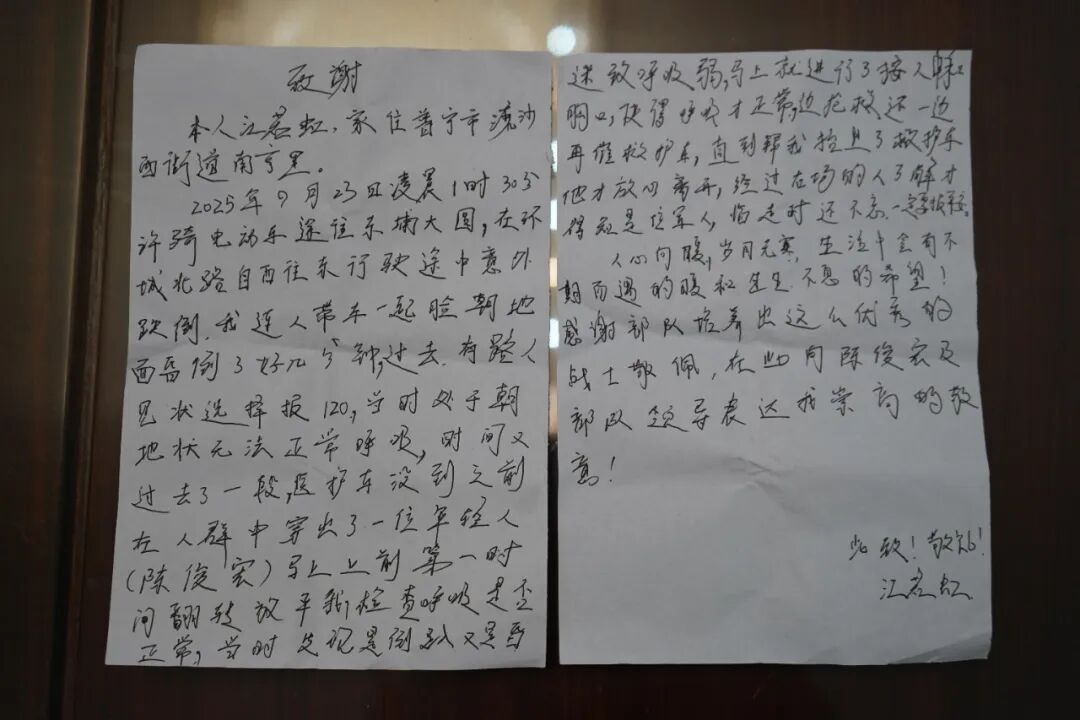 致谢
本人江若虹，家住普宁市流沙
西街道南亨里。
2025年9月23日凌晨1时30分
许骑电动车途往东埔大圆，在环
城北路自西往东行驶途中意外
跌倒，我连人带车一起脸朝地
面昏倒了好几分钟，过去，有路人
见状选择报120，当时处于朝
地状无法正常呼吸，时间又
过去了一段，医护车没到之前
在人群中穿出了一位年轻人
（陈俊宏）马上上前第一时
间翻转放平我，检查呼吸是否
正常，当时发现是倒趴又是昏
迷致呼吸弱，马上就进行了按人中和
胸口，使得呼吸才正常，边抢救还一边
再催救护车，直到帮我抬上了救护车
他才放心离开，经过在场的人了解才
得知是位军人，临走时还不忘一定要报平安。
人心向暖，岁月无寒，生活中会有不
期而遇的暖和生生不息的希望！
感谢部队培养出这么优秀的
战士敬佩，在此向陈俊宏及
部队领导表达我崇高的敬
意！
此致！敬礼！
江若虹